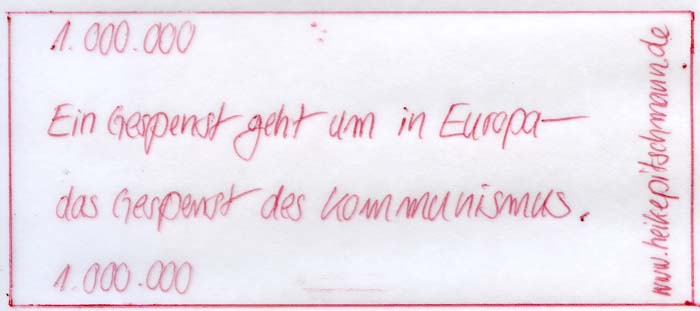 1.000.000
Ein Gespenst geht um in Europa—
das Gespenst des Kommunismus.
1.000.000
www.heikepitschmann.de